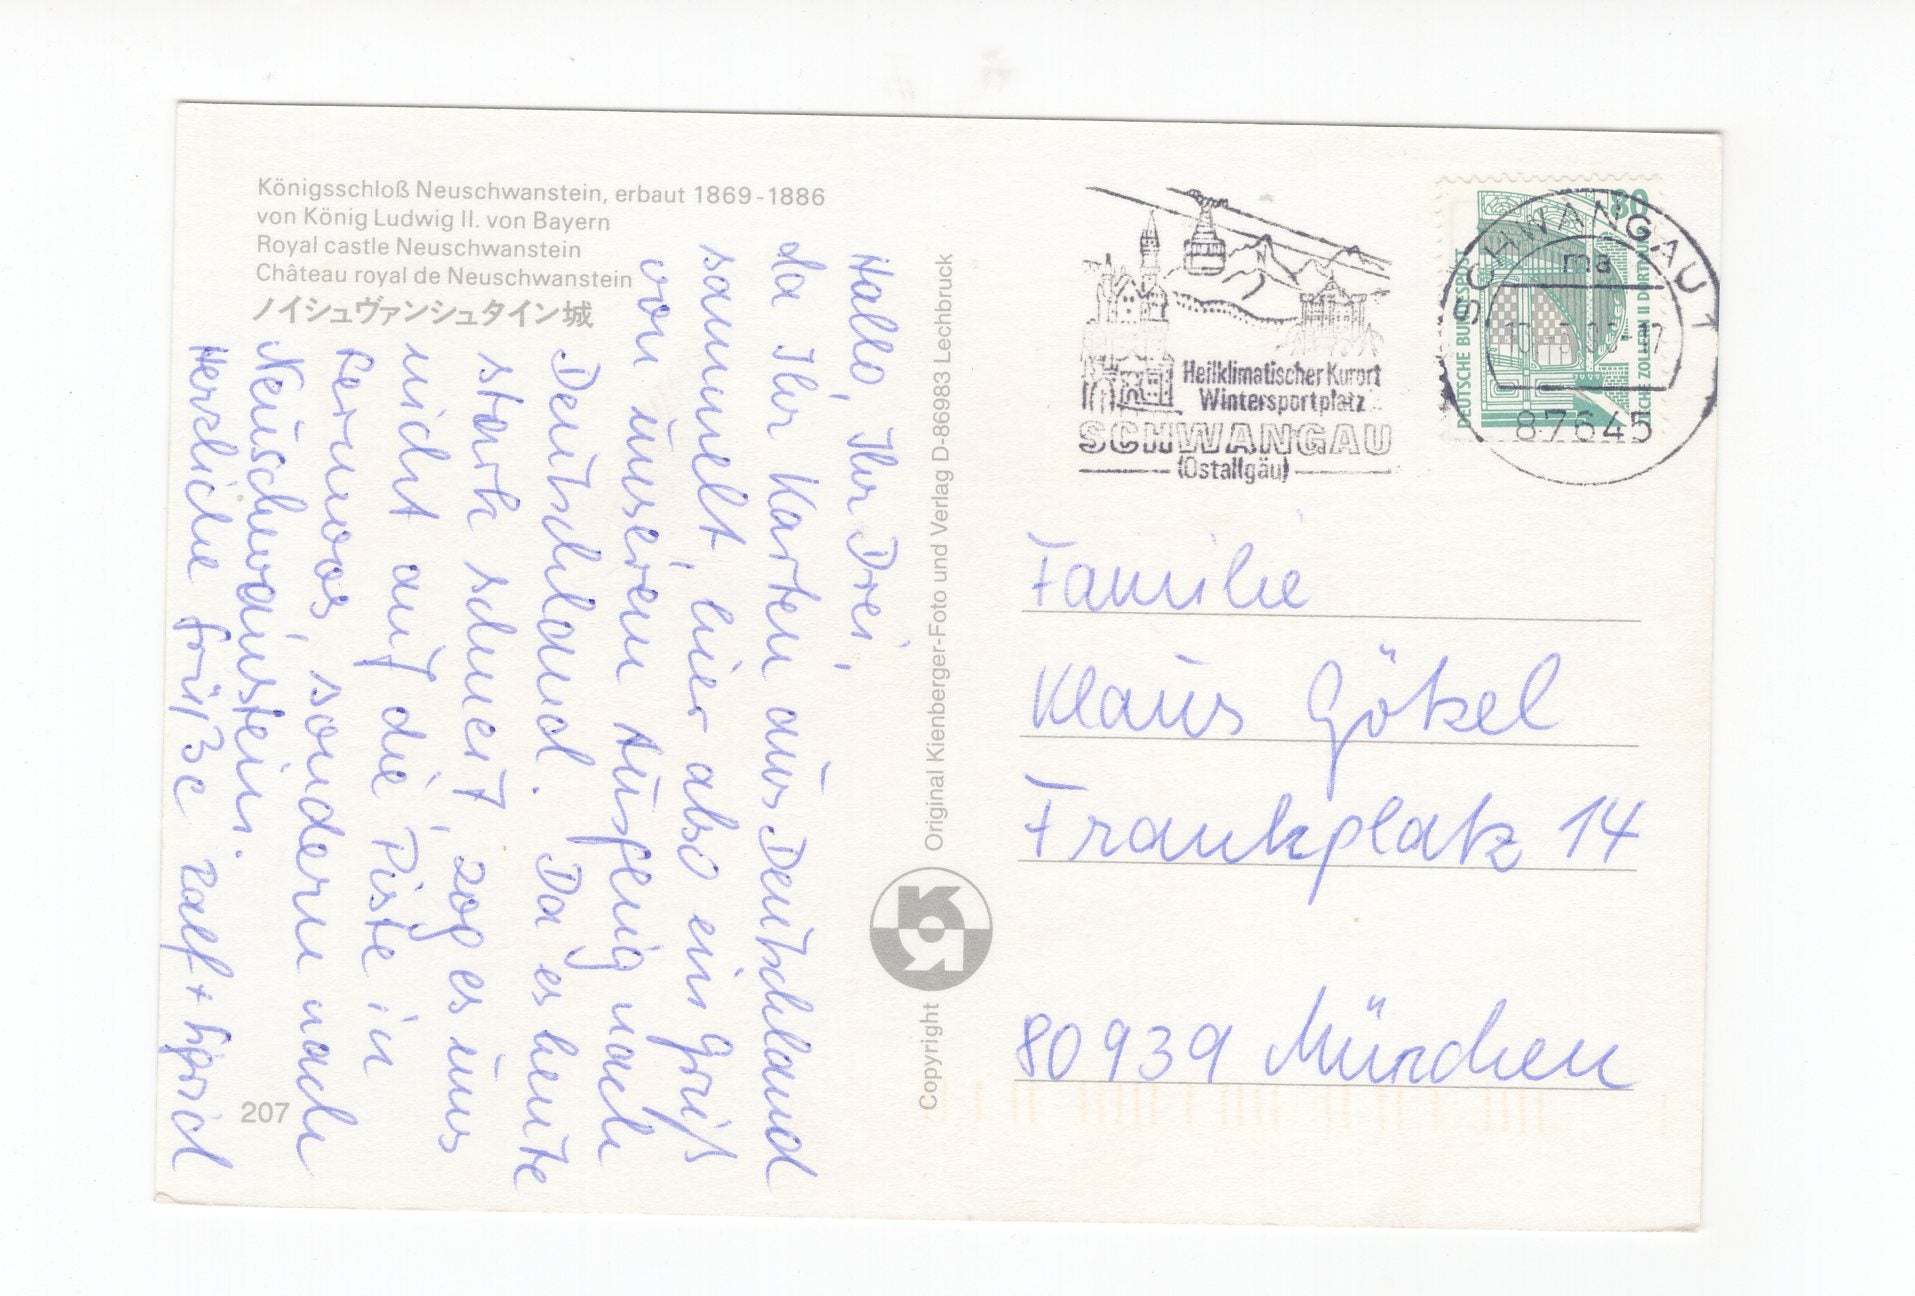 Königsschloß Neuschwanstein, erbaut 1869-1886
von König Ludwig II. von Bayern
Royal castle Neuschwanstein
Château royal de Neuschwanstein
ノイシュヴァンシュタイン城
Hallo, Ihr Drei,
da Ihr Karten aus Deutschland
sammelt, hier also ein Gruß
von unserem Ausflug nach
Deutschland. Da es heute
stark schneit, zog es uns
nicht auf die Piste in
Lermoos, sondern nach
Neuschwanstein.
Herzliche Grüße Ralf +
207
Copyright
Original Kienberger-Foto und Verlag D-86983 Lechbruck
Heilklimatischer Kurort
Wintersportplatz
SCHWANGAU
(Ostallgäu)
80
DEUTSCHE BUNDESPOST
ZOLLERN II DORTMUND
SCHWANGAU 1
ma
87645
Familie
Klaus Götzel
Frankplatz 14
80939 München